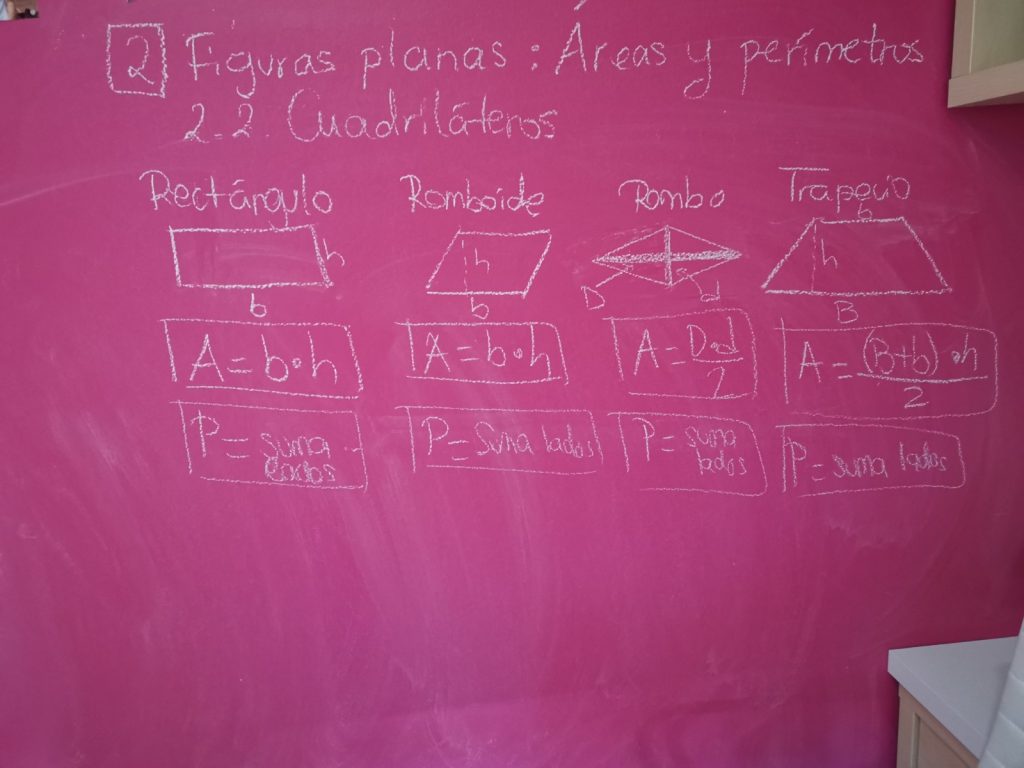 2 Figuras planas: Áreas y perímetros
2.2. Cuadriláteros
Rectángulo
h
b
A = b·h
P = suma
lados
Romboide
h
b
A = b·h
P = Suma lados
Rombo
D
d
A = D·d
2
P = suma
lados
Trapecio
b
h
B
A = (B+b)·h
2
P = suma lados